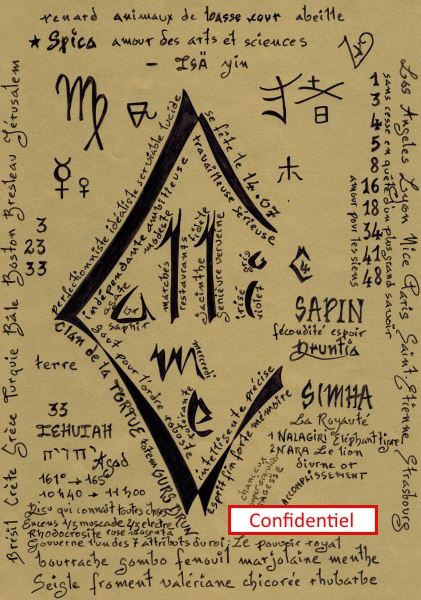 renard animaux de basse cour abeille
★ Spica amour des arts et sciences
- Isä yin
♍
猪
木
☿ ♀
3
23
33
Brésil Crète Grèce Turquie Bâle Boston Breslau Jérusalem
Los Angeles Lyon Nice Paris Saint Etienne Strasbourg
1
3
4
5
8
16
18
34
41
48
sans cesse en quête d'un plus grand savoir
amour pour les siens
se fête le 14.07
travailleuse sérieuse
perfectionniste idéaliste serviable lucide
indépendante ambitieuse
modeste
fidèle
agate
or
saphir
marches
restaurants
jacinthe
genièvre verveine
gris
irisé
violet
mercredi
Clan de la TORTUE totem OURS BRUN
goût pour l'ordre robuste
intelligente précise
esprit fin forte mémoire
terre
SAPIN
fécondité espoir
Druntia
SIMHA
La Royauté
1 NALAGIRI Éléphant Tigre
2 NARA Le lion
diurne or
ACCOMPLISSEMENT
chanceux
SAGESSE
33
IEHUIAH
יחויה
Açad
161° → 165°
10h40 → 11h00
Dieu qui connaît toutes choses
Encens 1/3 muscade 2/3 électre
Rhodocrosite rose magenta
Gouverne l'un des 7 attributs du roi: Le pouvoir royal
Confidentiel
bourrache gombo fenouil marjolaine menthe
Seigle froment valériane chicorée rhubarbe